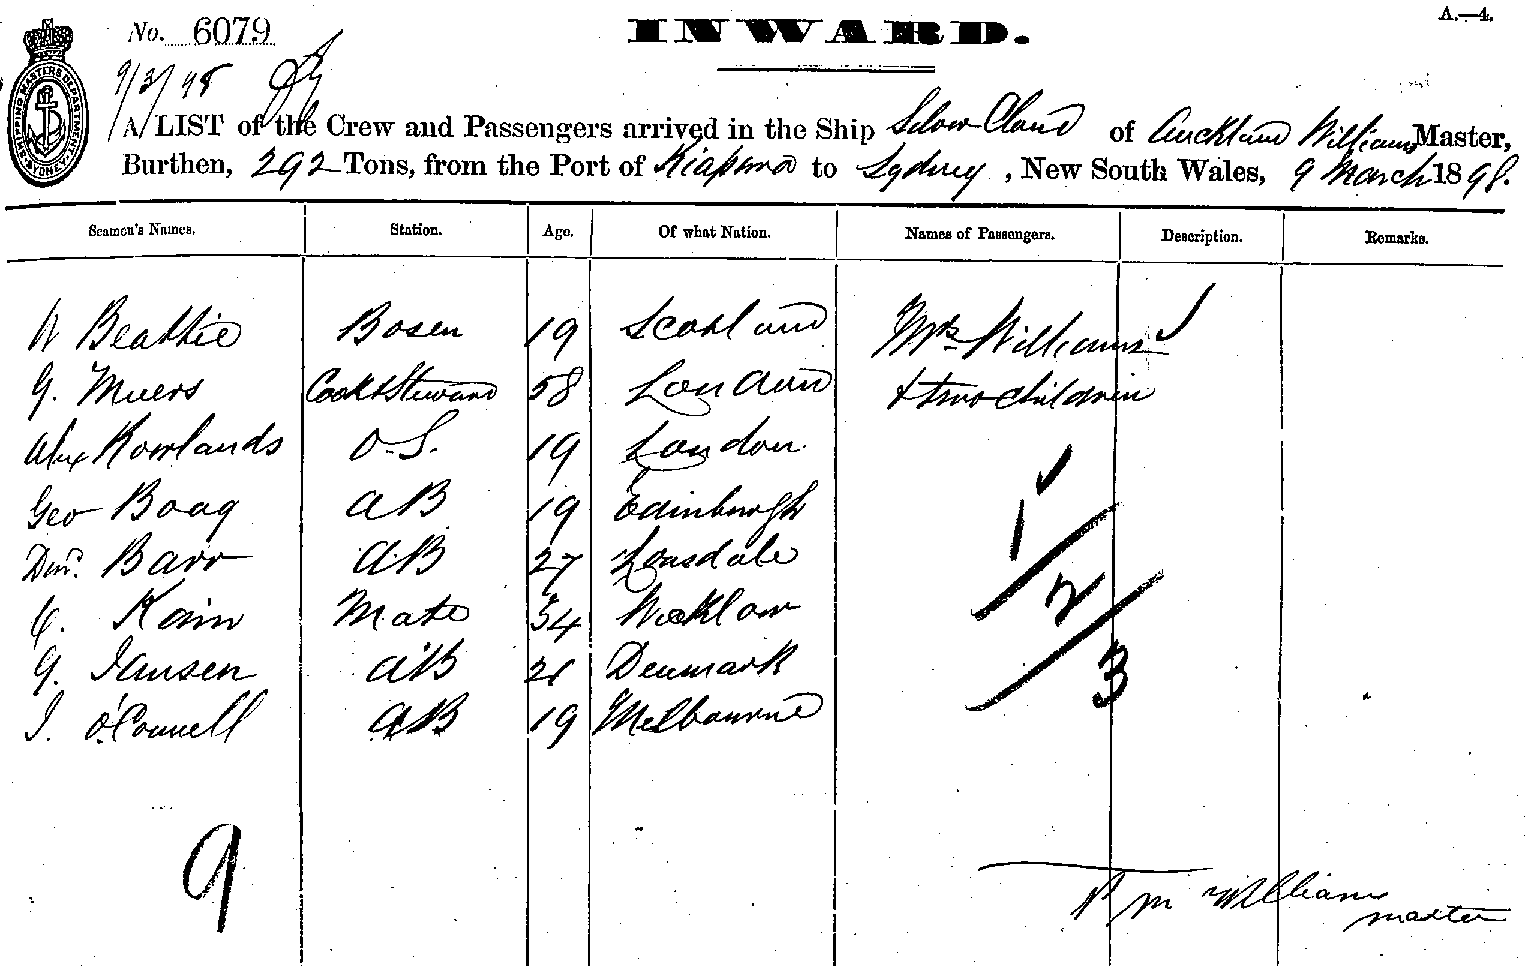 No. 6079
INWARD.
A.—4.
9/3/98
SHIPPING MASTERS DEPARTMENT SYDNEY
A LIST of the Crew and Passengers arrived in the Ship Silver Cloud of Auckland Williams Master,
Burthen, 292 Tons, from the Port of Kiapara to Sydney, New South Wales, 9 March 1898.
Seamen's Names. Station. Age. Of what Nation. Names of Passengers. Description. Remarks.
W Beattie Bosen 19 Scotland Mrs Williams
G. Myers Cook & Steward 58 London & two children
Alex Rowlands O.S. 19 London.
Geo Boag AB 19 Edinburgh 1
Dun. Barr AB 27 Lonsdale
C. Kain Mate 54 Wicklow 2
G. Jansen AB 21 Denmark 3
J. O'Connell AB 19 Melbourne
9
Williams
master